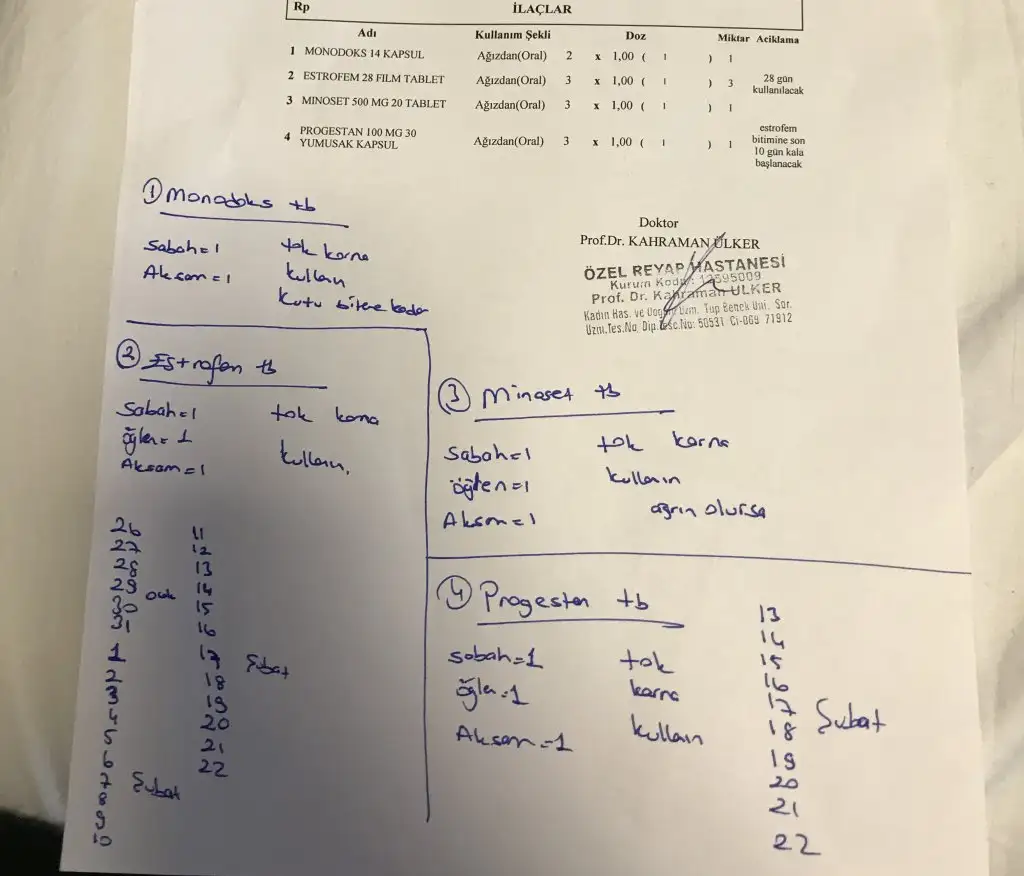 Rp
İLAÇLAR
Adı Kullanım Şekli Doz Miktar Aciklama
1 MONODOKS 14 KAPSUL Ağızdan(Oral) 2 x 1,00 ( 1 ) 1
2 ESTROFEM 28 FILM TABLET Ağızdan(Oral) 3 x 1,00 ( 1 ) 3 28 gün kullanılacak
3 MINOSET 500 MG 20 TABLET Ağızdan(Oral) 3 x 1,00 ( 1 ) 1
4 PROGESTAN 100 MG 30 YUMUSAK KAPSUL Ağızdan(Oral) 3 x 1,00 ( 1 ) 1 estrofem bitimine son 10 gün kala başlanacak
Doktor
Prof.Dr. KAHRAMAN ÜLKER
ÖZEL REYAP HASTANESİ
Kurum Kodu: 12595009
Prof. Dr. Kahraman ULKER
Kadın Has. ve Doğ. Uzm. Tüp Bebek Uni. Sor.
Uzm.Tes.No Dip.Tesc.No: 50531 Ci-069 71912
① Monodoks tb
Sabah=1 tok karna
Aksam=1 kullan
kutu bitene kadar
② Estrofen tb
Sabah=1 tok karna
öğlen=1
Aksam=1 kullanın.
26 11
27 12
28 13
29 14
30 Ocak 15
31 16
1 17 Şubat
2 18
3 19
4 20
5 21
6 22
7 Şubat
8
9
10
③ Minoset tb
Sabah=1 tok karna
öğlen=1 kullanın
Aksam=1 ağrın olursa
④ Progestan tb
sabah=1 tok
öğlen=1 karna
Aksam=1 kullanın
13
14
15
16
17
18 Şubat
19
20
21
22